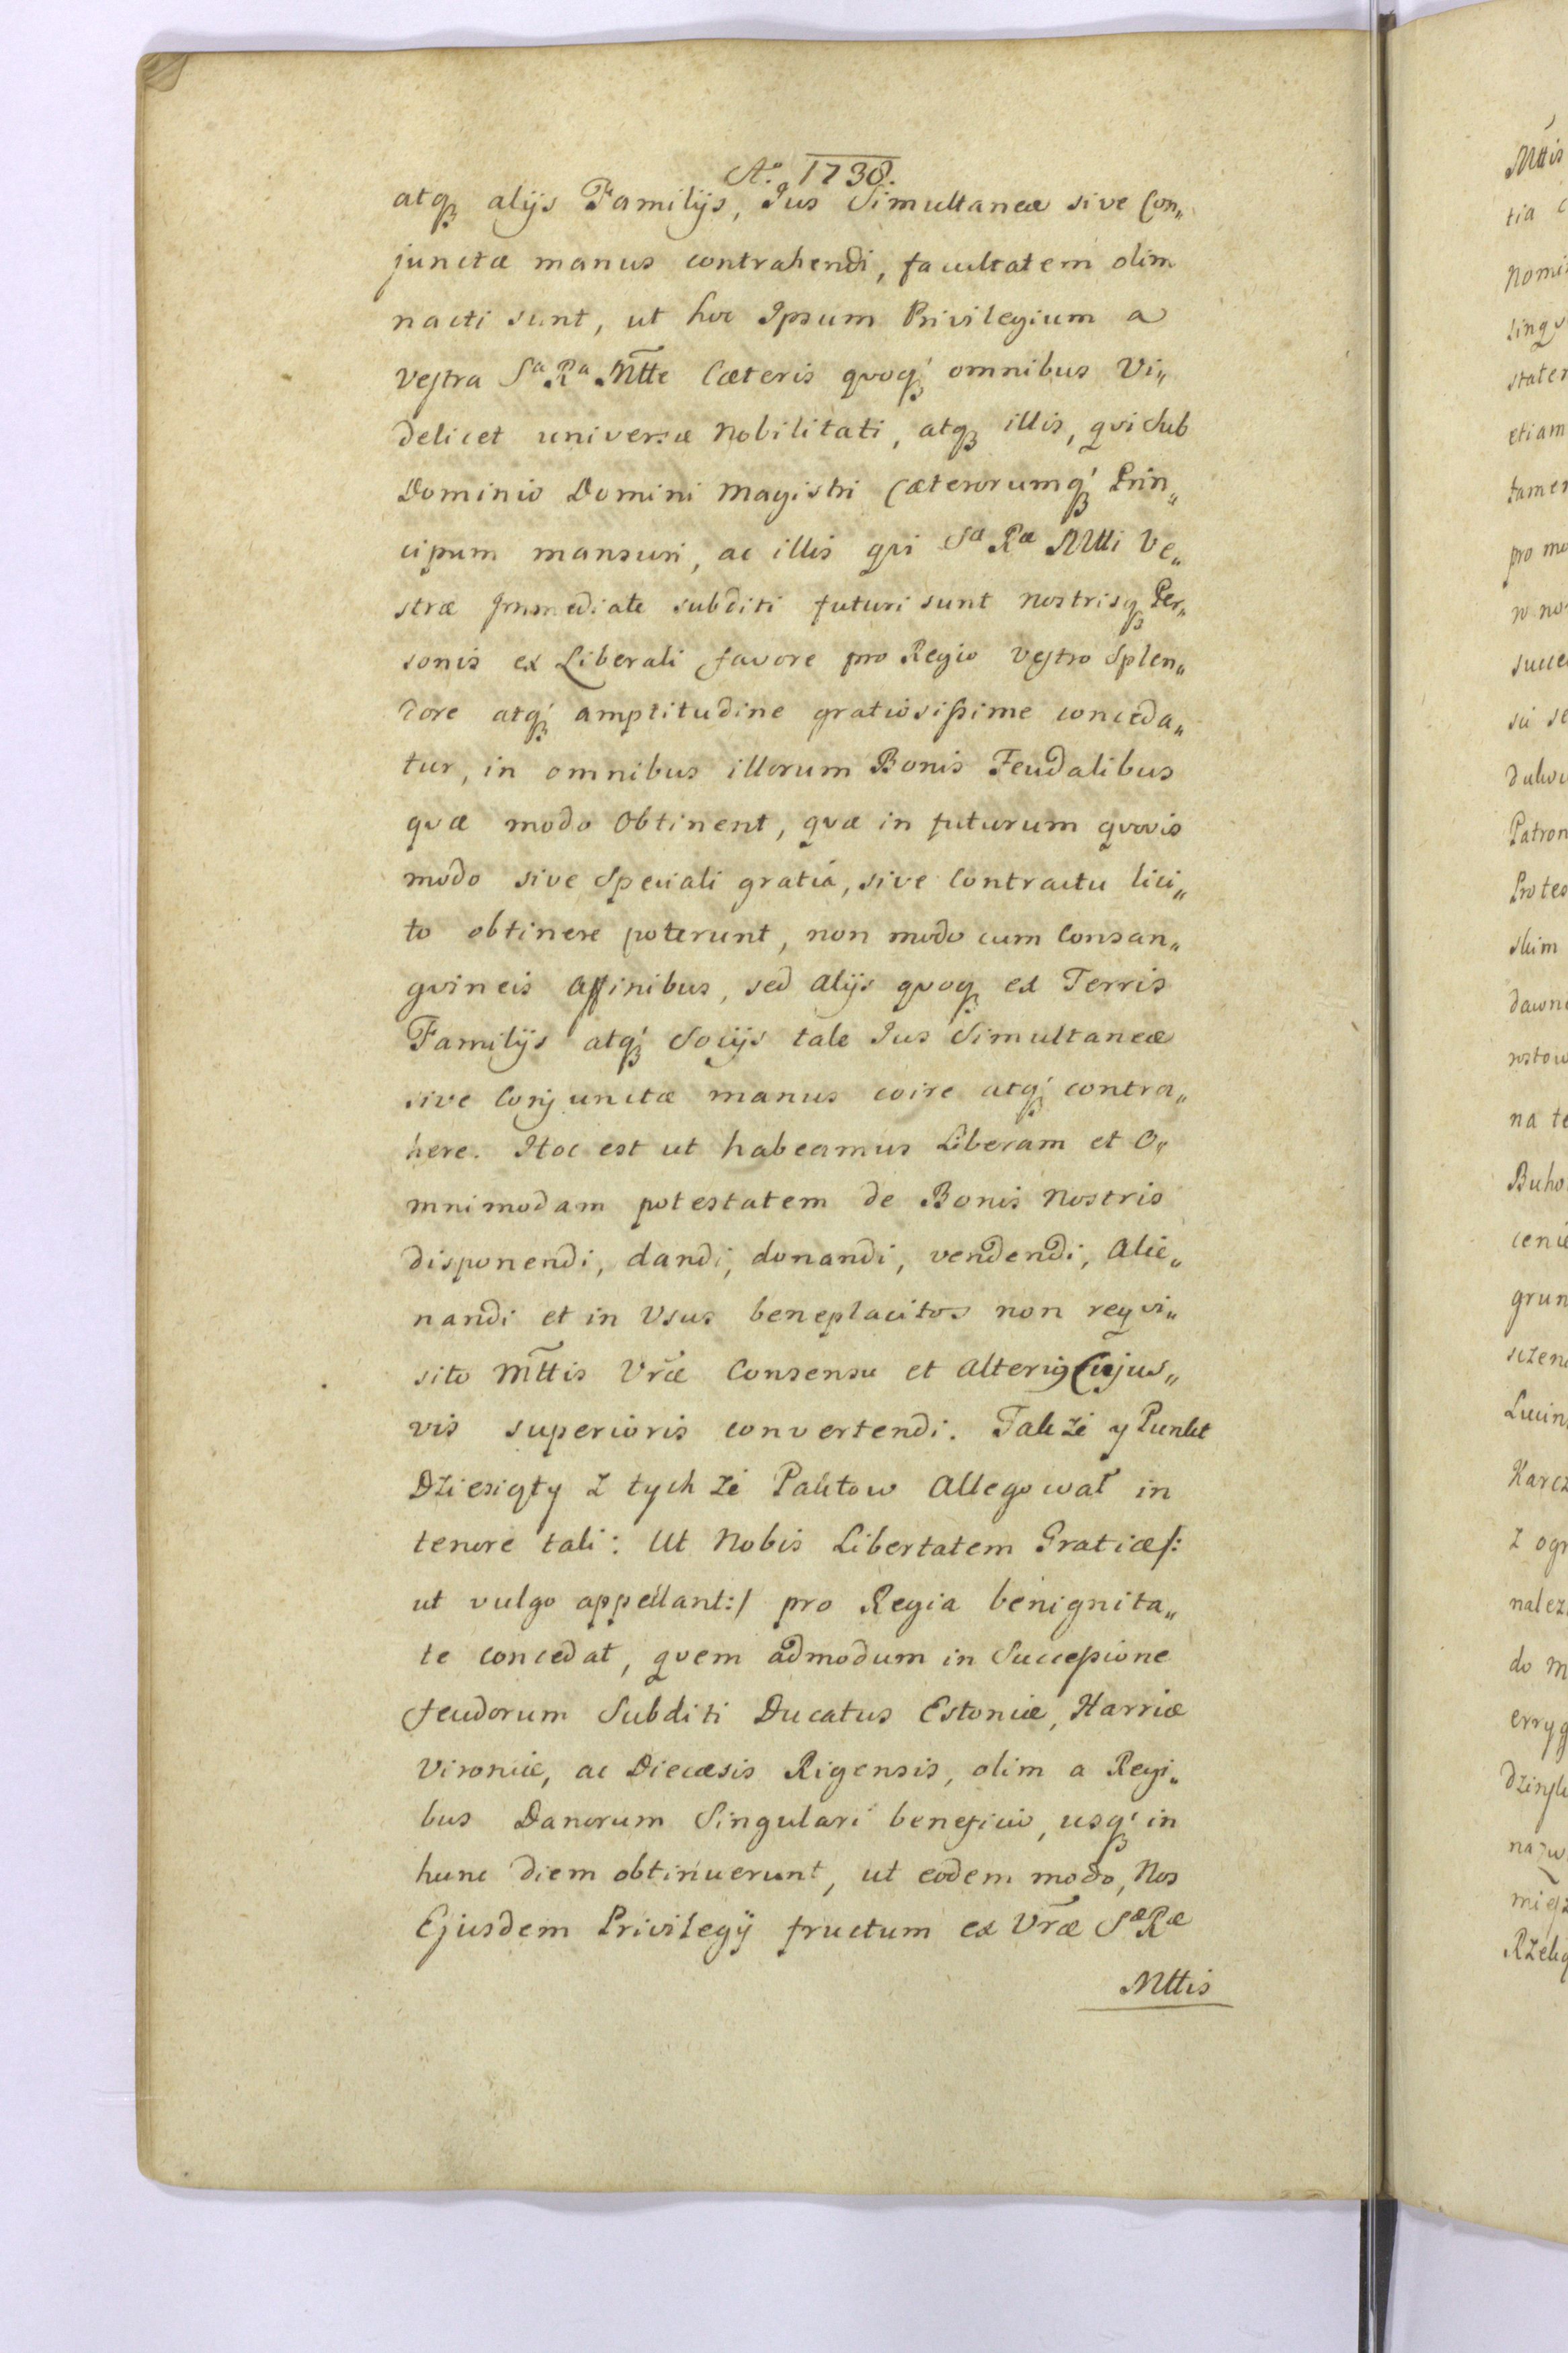 Aº. 1738.
atqꝫ alijs Familijs, Jus Simultaneæ sive Con„
junctæ manus contrahendi, facultatem olim
nacti sunt, ut hoc Ipsum Privilegium a
Vestra Sª Rª Mtte Cæteris quoqꝫ omnibus Vi„
delicet universæ Nobilitati, atqꝫ illis, qvi sub
Dominio Domini Magistri Cæterorumqꝫ Prin„
cipum mansuri, ac illis qvi Sæ Ræ Mtti Ve„
stræ Immediate subditi futuri sunt Nostrisqꝫ Per„
sonis ex Liberali favore pro Regio Vestro Splen„
dore atqꝫ amplitudine gratiosissime conceda„
tur, in omnibus illorum Bonis Feudalibus
qvæ modo Obtinent, qvæ in futurum qvovis
modo sive Speciali gratiá, sive Contractu lici„
to obtinere poterunt, non modo cum Consan„
gvineis Affinibus, sed Alijs qvoqꝫ ex Terris
Familijs atqꝫ Socijs tale Jus Simultaneæ
sive Conjunctæ manus coire atqꝫ contra„
here. Hoc est ut habeamus Liberam et O„
mnimodam potestatem de Bonis Nostris
disponendi, dandi, donandi, vendendi, Alie„
nandi et in Usus beneplacitos non reqvi„
sito Mttis Vræ Consensu et Alterius Cujus„
vis superioris convertendi. Takźe y Punkt
Dziesiąty z tychźe Paktow Allegował in
tenore tali: Ut Nobis Libertatem Gratiæ/:
ut vulgo appellant:/ pro Regia benignita„
te concedat, qvem admodum in Successione
feudorum Subditi Ducatus Estoniæ, Harriæ
Vironiæ, ac Diecæsis Rigensis, olim a Regi„
bus Danorum Singulari beneficio, usqꝫ in
hunc diem obtinuerunt, ut eodem modo, Nos
Ejusdem Privilegij fructum ex Vræ Sæ Ræ
Mttis